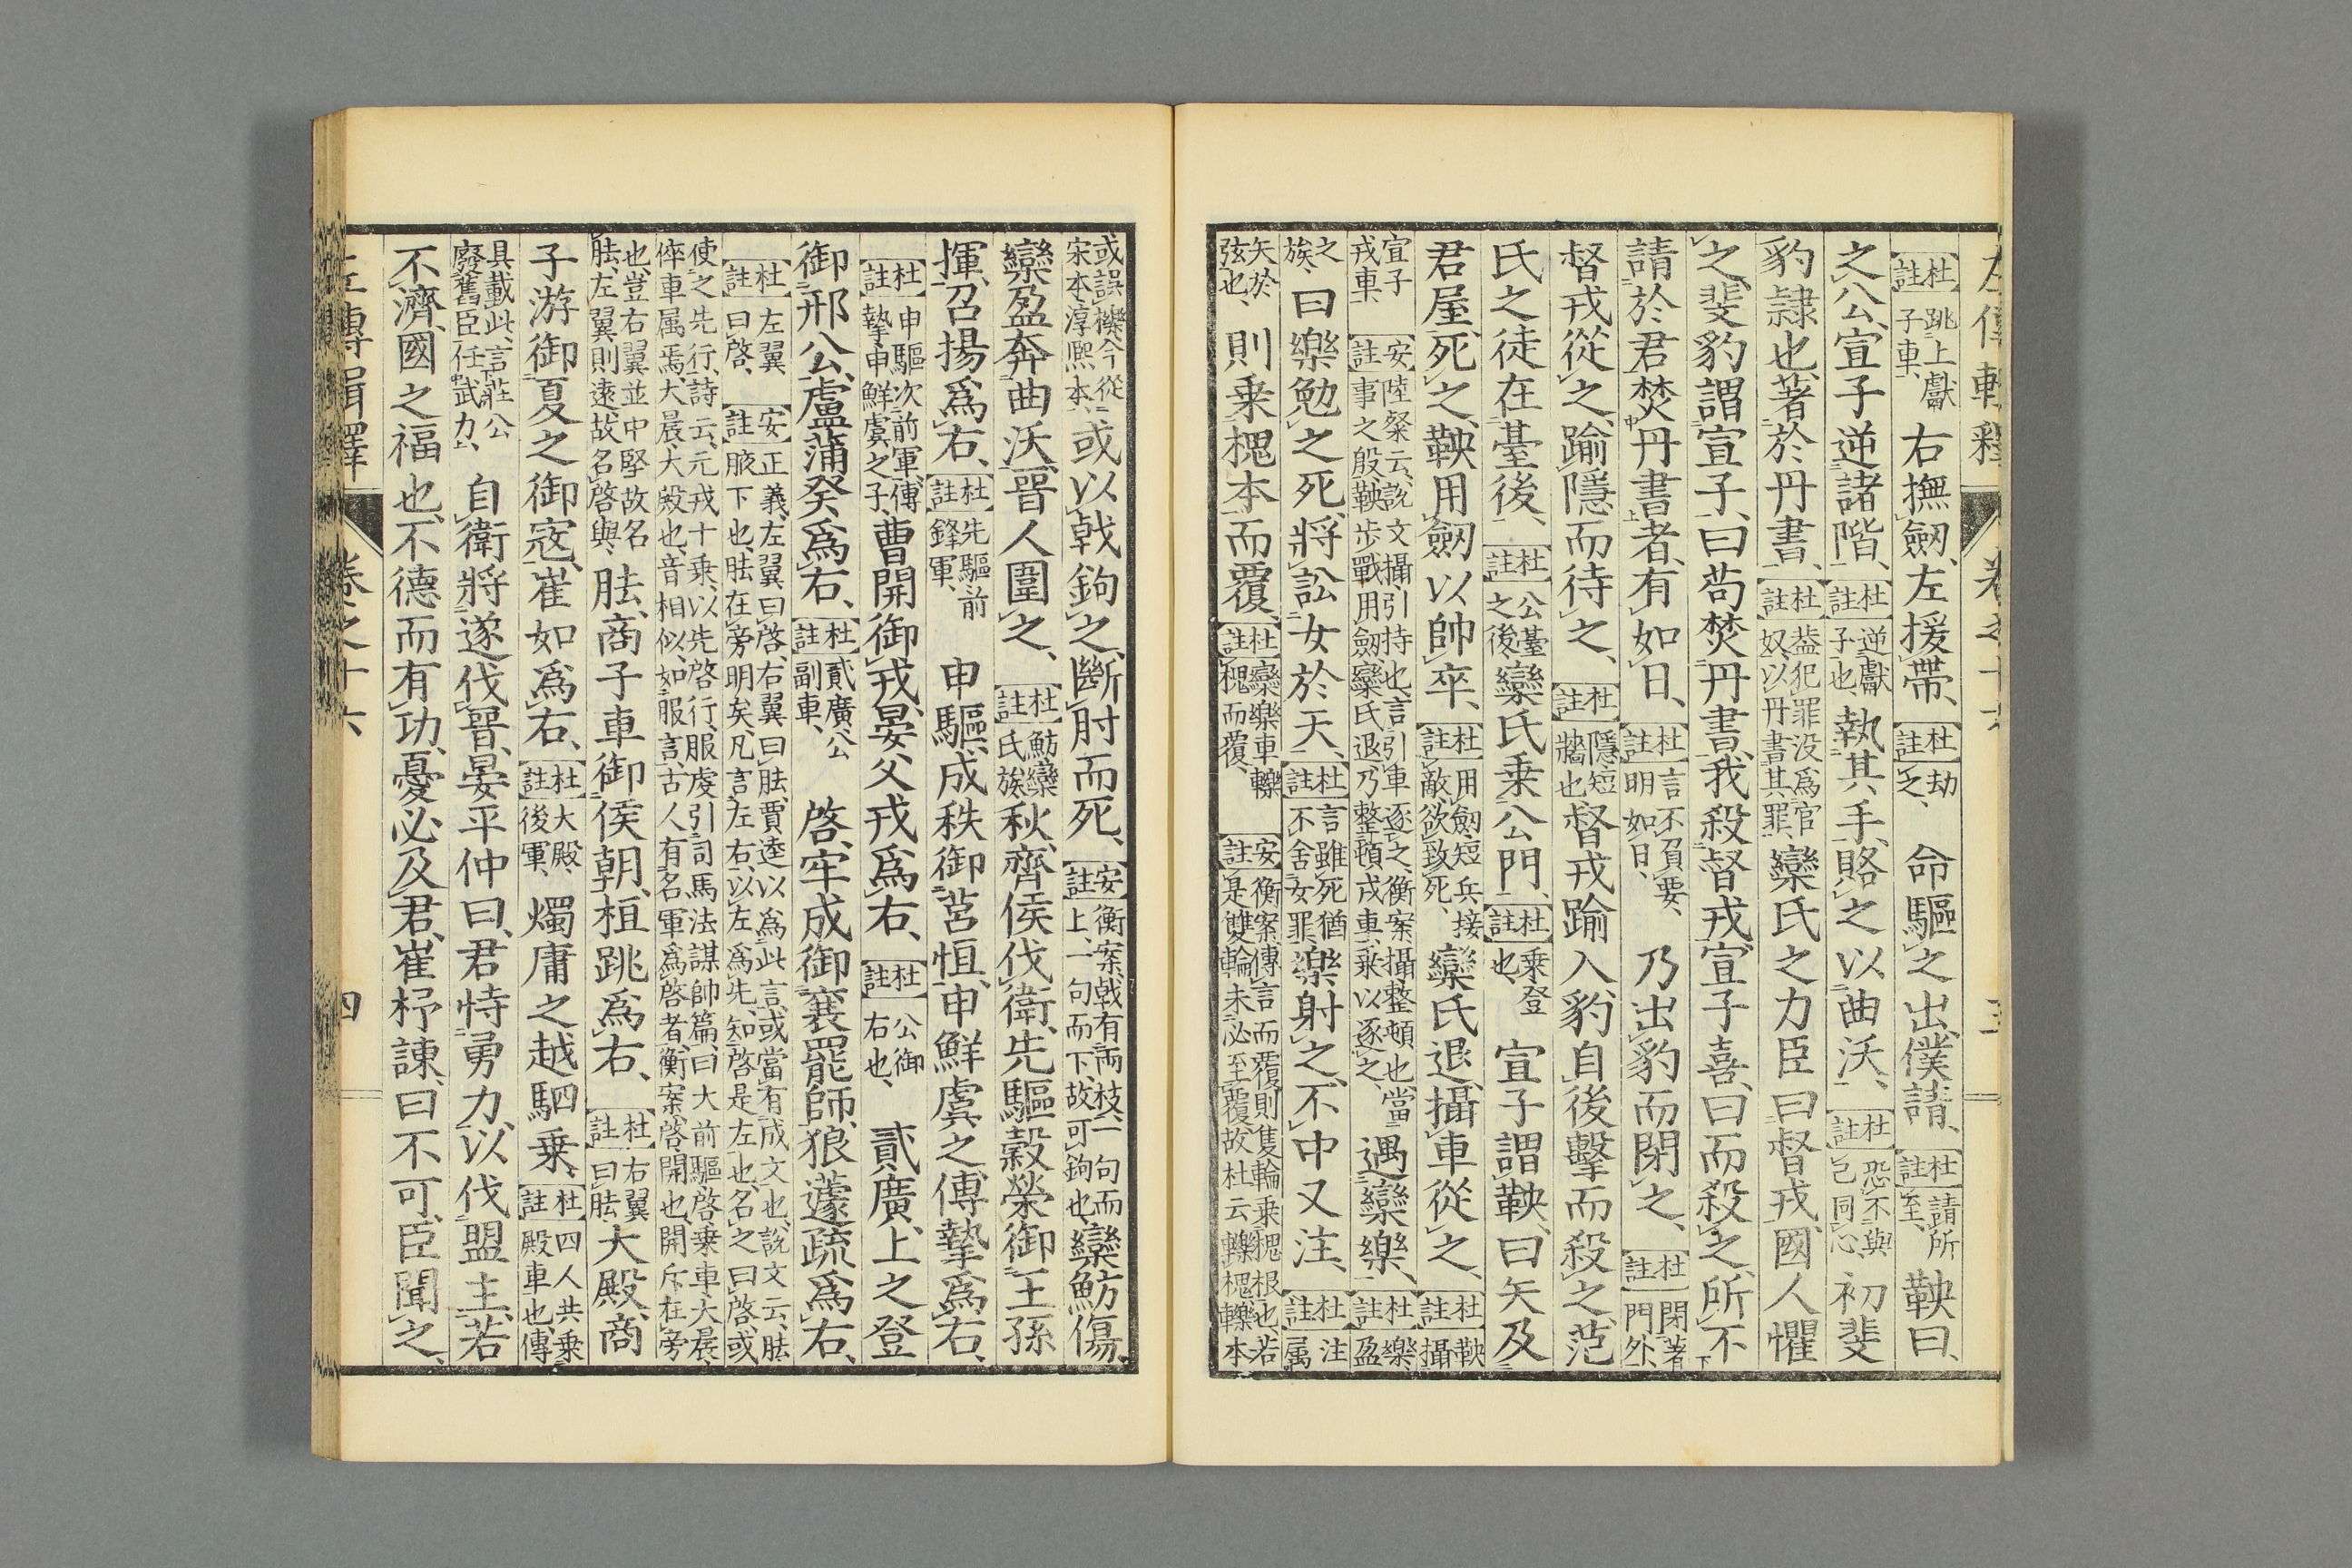 左傳輯釋 卷之十六 三
【杜註】跳上獻子車、右撫劒、左援帶、【杜註】劫之、命驅之出、僕請、【杜註】請所至、鞅曰、
之公、宣子逆諸階、【杜註】逆獻子也、執其手、賂之以曲沃、【杜註】恐不與己同心初斐
豹隷也、著於丹書、【杜註】葢犯罪没爲官奴、以丹書其罪、欒氏之力臣曰督戎、國人懼
之、斐豹謂宣子、曰苟焚丹書、我殺督戎、宣子喜、曰而殺之、所不
請於君焚丹書者、有如日、【杜註】言不負要、明如日、乃出豹而閉之、【杜註】閉著門外、
督戎從之、踰隱而待之、【杜註】隱短牆也督戎踰入、豹自後擊而殺之、范
氏之徒在臺後、【杜註】公臺之後欒氏乗公門、【杜註】乗登也、宣子謂鞅、曰矢及
君屋、死之、鞅用劒以帥卒、【杜註】用劒短兵接敵、欲致死、欒氏退、攝車從之、【杜註】鞅攝
宣子戎車、【安註】陸粲云、説文攝引持也、言引車逐之、衡案攝整頓也、當事之殷、鞅歩戰用劒、欒氏退、乃整頓戎車、乗以逐之、遇欒樂、【杜註】樂盈
之族、曰樂勉之、死、將訟女於天、【杜註】言雖死猶不舍女罪、樂射之、不中、又注、【杜註】注属
矢於弦也、則乗槐本而覆、【杜註】欒樂車轢槐而覆、【安註】衡案、傳言而覆、則隻輪乗槐根也、若是雙輪未必至覆、故杜云轢槐、轢本
或誤檪、今從宋本淳熙本、或以戟鉤之、斷肘而死、【安註】衡案、戟有兩枝、一句而上、一句而下、故可鉤也、欒魴傷、
欒盈奔曲沃、晉人圍之、【杜註】魴欒氏族秋、齊侯伐衛、先驅穀榮御王孫
揮、召揚爲右、【杜註】先驅前鋒軍、申驅、成秩御莒恒、申鮮虞之傅摯爲右、
【杜註】申驅次前軍、傅摯申鮮虞之子、曹開御戎、晏父戎爲右、【杜註】公御右也、貳廣、上之登
御邢公、盧蒲癸爲右、【杜註】貳廣公副車、啓、牢成御襄罷師、狼蘧疏爲右、
【杜註】左翼曰啓、【安註】正義、左翼曰啓、右翼曰胠、賈逵以爲此言、或當有成文也、説文云、胠腋下也、胠在旁明矣、凡言左右、以左爲先、知啓是左也、名之曰啓、或
使之先行、詩云、元戎十乗、以先啓行、服虔引司馬法謀帥篇、曰大前驅、啓乗車、大晨倅車属焉、大晨大殿也、音相似、如服言、古人有名軍爲啓者、衡案、啓、開也、開斥在旁
也、豈右翼並中堅故名胠、左翼則遠、故名啓與、胠、商子車御侯朝、桓跳爲右、【杜註】右翼曰胠、大殿、商
子游御夏之御寇、崔如爲右、【杜註】大殿、後軍、燭庸之越駟乗、【杜註】四人共乗殿車也、傳
具載此、言莊公廢舊臣、任武力、自衛將遂伐晉、晏平仲曰、君恃勇力、以伐盟主、若
不濟、國之福也、不德而有功、憂必及君、崔杼諫、曰不可、臣聞之、
左傳輯釋 卷之十六 四